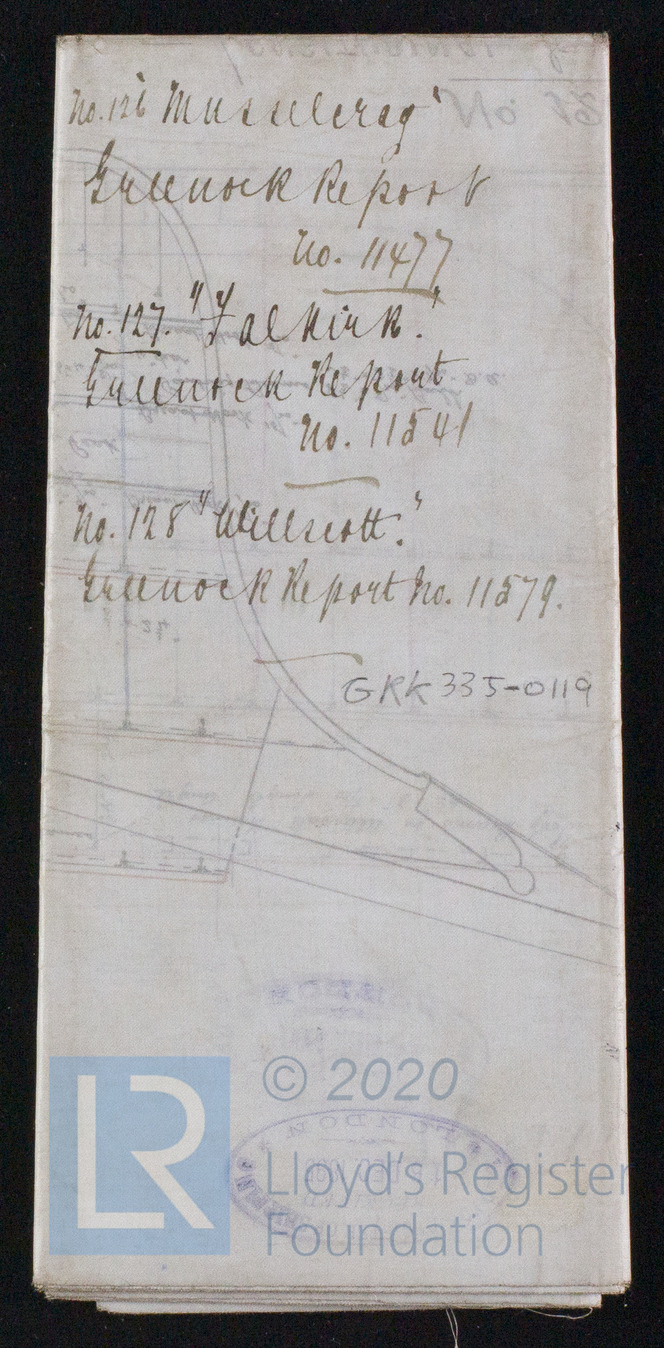 No. 126 Musselcrag"
Greenock Report
No. 11477
No. 127. "Falkirk."
Greenock Report
No. 11541
No. 128 "Willscott."
Greenock Report No. 11579.
GRK 335-0119
LONDON
LR
© 2020
Lloyd's Register
Foundation